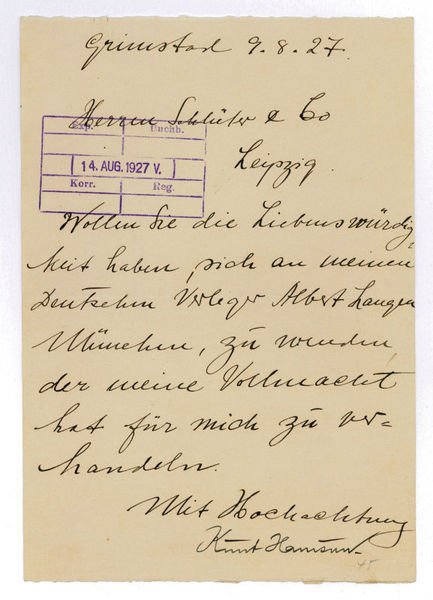 Grimstad 9.8.27.
Herren Schlüter & Co
Leipzig.
Exp. Buchb.
14. AUG. 1927 V.
Korr. Reg.
Wollen Sie die Liebenswürdig-
keit haben, sich an meinen
Deutschen Verleger Albert Langen
München, zu wenden
der meine Vollmacht
hat für mich zu ver-
handeln.
Mit Hochachtung
Knut Hamsun.
45